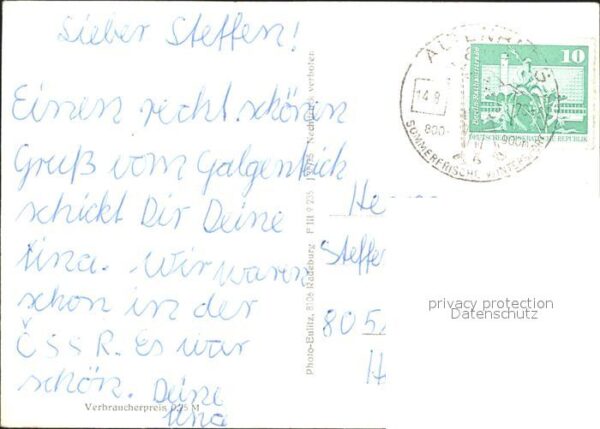 Lieber Steffen!
Einen recht schönen
Gruß vom Galgenteich
schickt Dir Deine
Tina. Wir waren
schon in der
ČSSR. Es war
schön. Deine
Tina
Verbraucherpreis 0,25 M
Photo-Eulitz, 8106 Radeburg P III 9 235 Nachdruck verboten
10
DEUTSCHE DEMOKRATISCHE REPUBLIK
ALTENBERG
14.8.
800-
900m
SOMMERFRISCHE
He
Steffe
805
H
privacy protection
Datenschutz